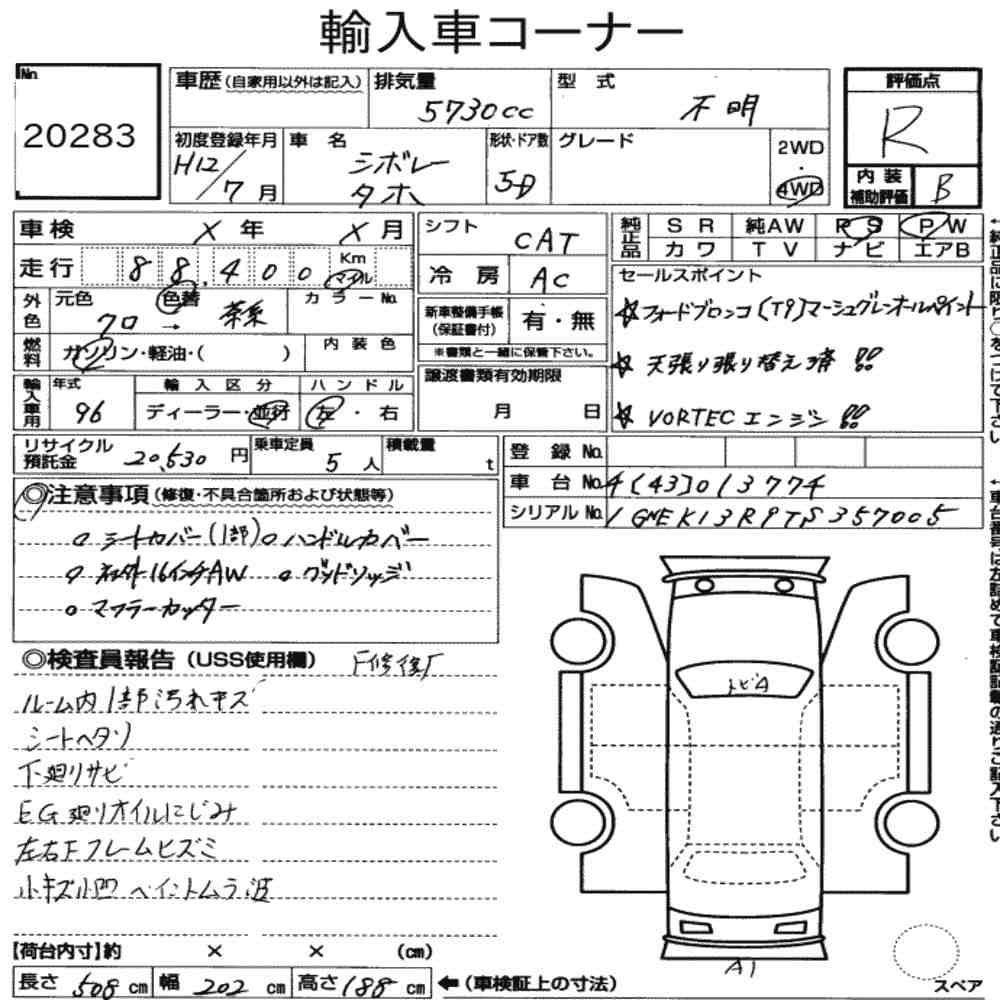 輸入車コーナー
No. 20283
車歴(自家用以外は記入) 排気量 5730cc 型式 不明 評価点 R
初度登録年月 H12/7月 車名 シボレー タホ 形状・ドア数 5D グレード 2WD・4WD 内装補助評価 B
車検 X年 X月 シフト CAT 純正品 SR 純AW PS PW
カワ TV ナビ エアB
走行 88,400 Km マイル 冷房 AC
セールスポイント
外色 元色 クロ → 色替 茶系 カラーNo. 新車整備手帳(保証書付) 有・無
☆フォードブロンコ(T9)マーシュグレーオールペイント
燃料 ガソリン・軽油・( ) 内装色 ※書類と一緒に保管下さい。
☆天張り張り替え済!!
輸入車用 年式 96 輸入区分 ディーラー・並行 ハンドル 左・右 譲渡書類有効期限 月 日
☆VORTECエンジン!!
リサイクル預託金 20,530円 乗車定員 5人 積載量 t 登録No.
車台No. 4[43]013774
シリアルNo. 1GNEK13R9TS357005
◎注意事項(修復・不具合箇所および状態等)
○シートカバー(1部) ○ハンドルカバー
○社外16インチAW ○グッドリッジ
○マフラーカッター
◎検査員報告(USS使用欄) F修復歴
ルーム内1部汚れキズ
シートヘタリ
下廻りサビ
EG廻りオイルにじみ
左右Fフレームヒズミ
小キズ小凹 ペイントムラ 波
トビA
A1
スペア
【荷台内寸】約 × × (cm)
長さ 508cm 幅 202cm 高さ 188cm ←(車検証上の寸法)
←純正品に限り○をつけて下さい
←車台番号は左詰めで車検証記載の通りご記入下さい